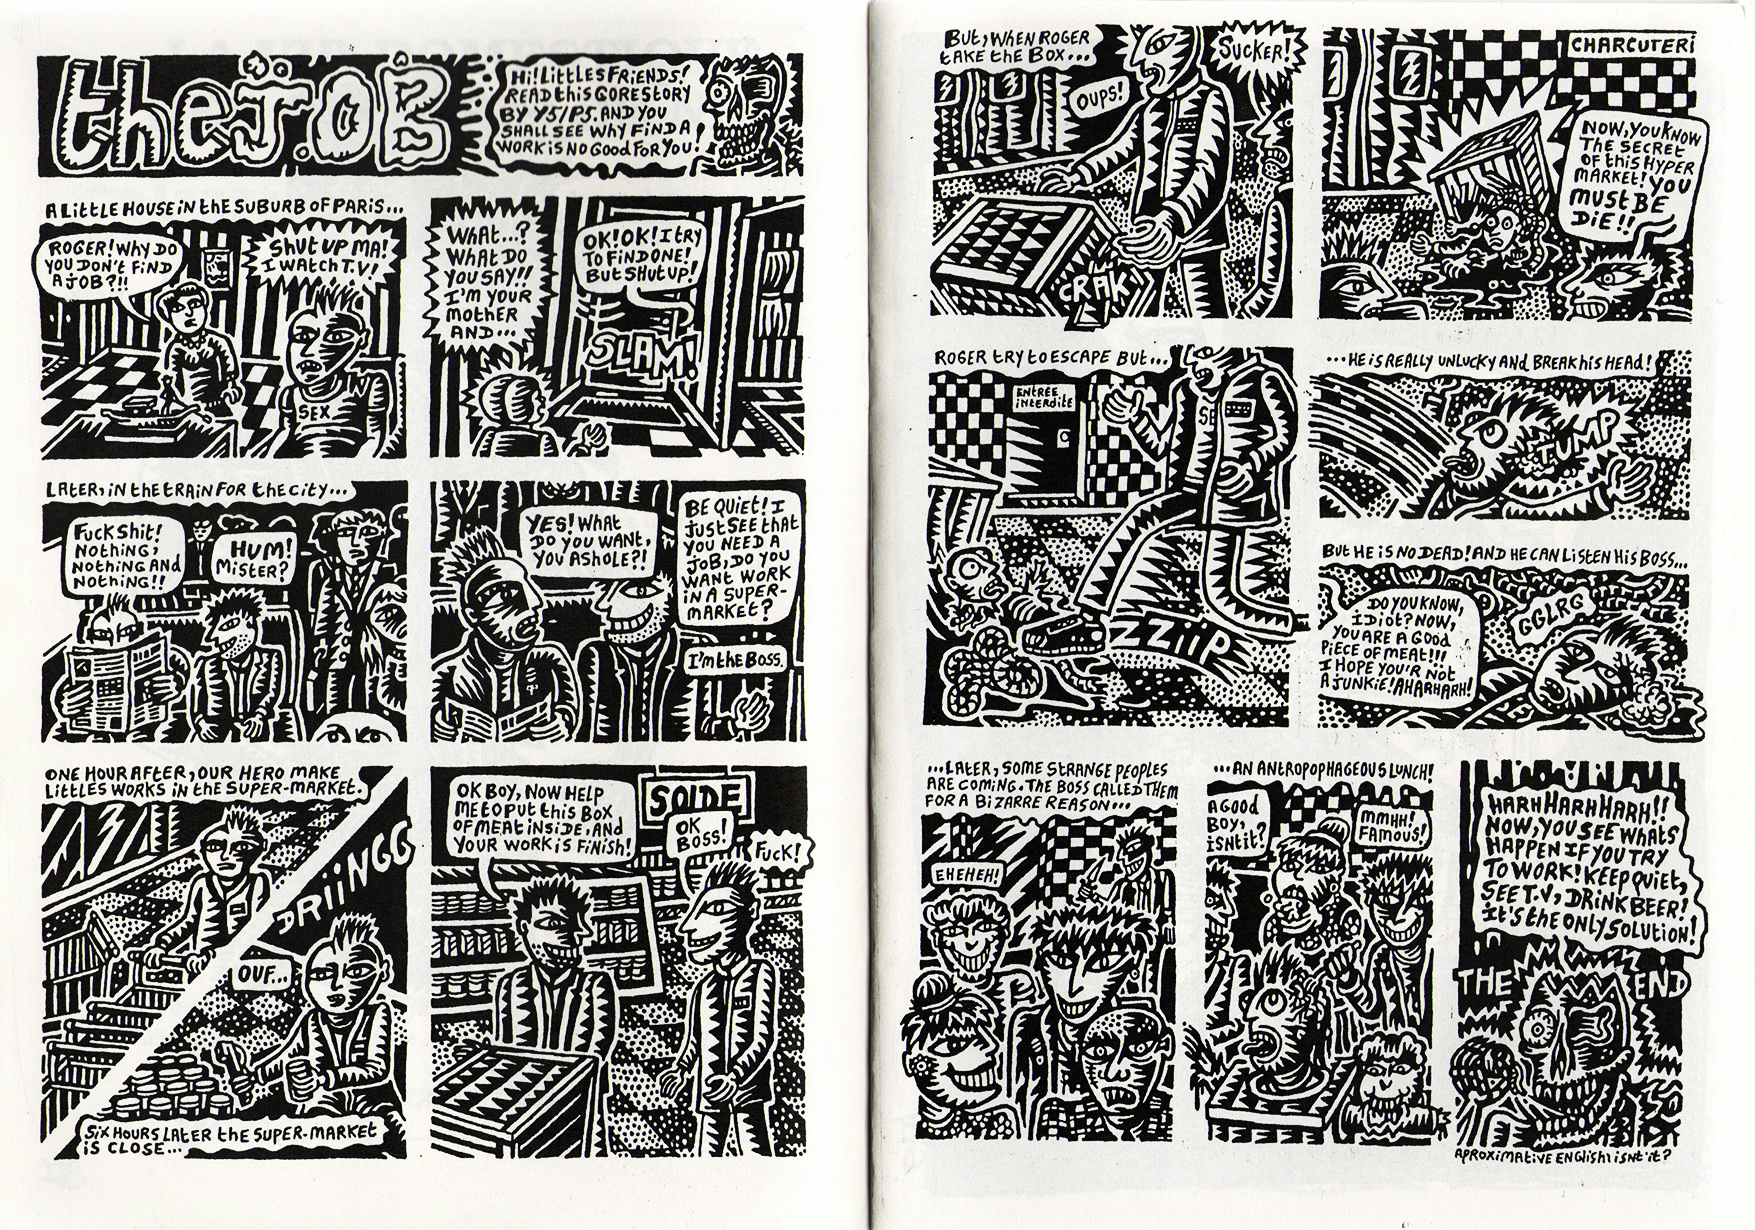 the JOB
Hi! LittLES FRiENDS!
READ this GORE STORY
BY Y5/P5. AND YOU
SHALL SEE WHY FIND A
WORK iS NO GOOD FOR YOU!
A LittLE HOUSE iN thE SUBURB OF PARiS...
ROGER! WHY DO
YOU DON't FiND
A JOB?!!
ShUt UP MA!
I WAtCH T.V!
SEX
WhAt...?
WhAt DO
YOU SAY!!
I'M YOUR
MOtHER
AND...
OK! OK! I tRY
TO FiND ONE!
BUt SHUt UP!
SLAM!
LAtER, iN thE tRAiN FOR thE CitY...
FUCK SHit!
NOtHiNG,
NOtHiNG AND
NOtHiNG!!
HUM!
MiStER?
YES! WHAt
DO YOU WANt,
YOU ASHOLE?!
BE QUiEt! I
JUSt SEE tHAt
YOU NEED A
JOB, DO YOU
WANt WORK
iN A SUPER-
MARKEt?
I'M thE BOSS.
ONE HOUR AFtER, OUR HERO MAKE
LittLES WORKS iN thE SUPER-MARKEt.
DRiiNGG
OUF...
SiX HOURS LAtER thE SUPER-MARKEt
iS CLOSE...
OK BOY, NOW HELP
ME tO PUt thiS BOX
OF MEAt iNSiDE, AND
YOUR WORK iS FiNiSH!
SOLDE
OK
BOSS!
FUCK!
BUt, WHEN ROGER
tAKE thE BOX...
SUCKER!
OUPS!
CRAK
CHARCUTERi
NOW, YOU KNOW
THE SECREt
OF thiS HYPER
MARKEt! YOU
MUSt BE
DiE!!
ROGER tRY tO ESCAPE BUt...
ENtRÉE
iNtERDitE
SE
ZZiiP
...HE iS REALLY UNLUCKY AND BREAK hiS HEAD!
TUMP
BUt HE iS NO DEAD! AND HE CAN LiStEN HiS BOSS...
DO YOU KNOW,
IDiOt? NOW,
YOU ARE A GOOD
PiECE OF MEAt!!!
I HOPE YOU'R NOt
A JUNKiE! AHARHARH!
GGLRG
...LAtER, SOME StRANGE PEOPLES
ARE COMiNG. THE BOSS CALLED tHEM
FOR A BiZARRE REASON...
EHEHEH!
...AN ANtROPOPHAGEOUS LUNCH!
A GOOD
BOY,
iSNt it?
MMHH!
FAMOUS!
HARH HARH HARH!!
NOW, YOU SEE WHAtS
HAPPEN iF YOU tRY
TO WORK! KEEP QUiEt,
SEE T.V, DRiNK BEER!
It'S thE ONLY SOLUtiON!
THE END
APROXiMAtiVE ENGLiSH! iSNt' it?